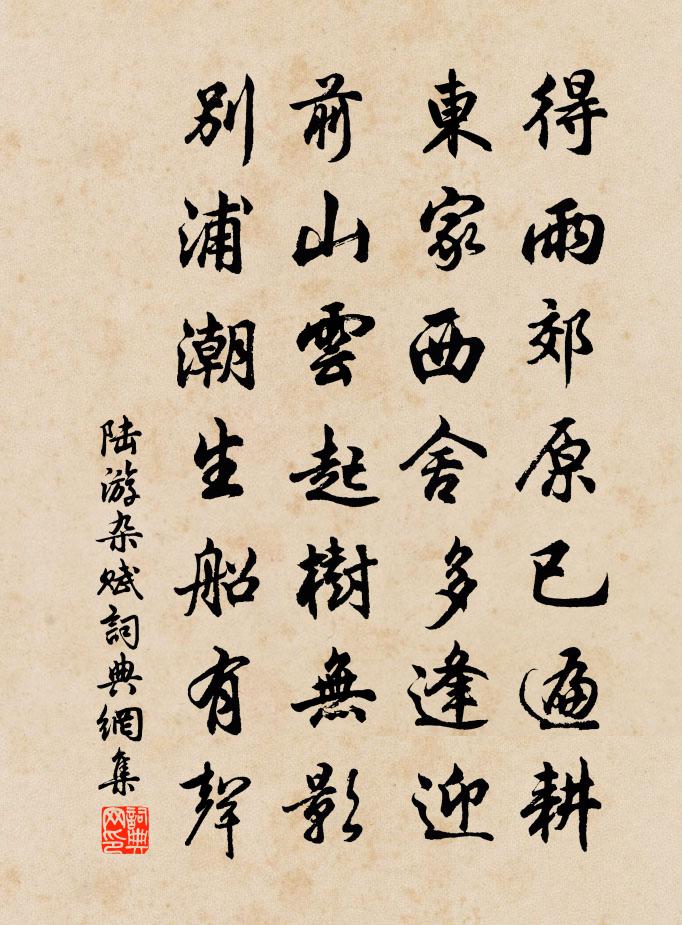 得雨郊原已遍耕
東家西舍多逢迎
前山雲起樹無影
別浦潮生船有聲
陆游杂赋詞典網集
詞典網印